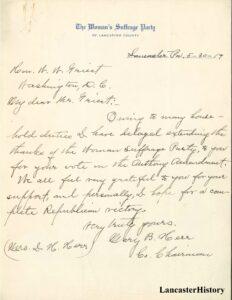 The Woman's Suffrage Party
OF LANCASTER COUNTY
Lancaster Pa. 5-20-19
Hon. W. W. Griest
Washington, D. C.
My dear Mr. Griest:-
Owing to many house-
hold duties I have delayed extending the
thanks of the Woman Suffrage Party, to you
for your vote in the Anthony Amendment.
We all feel very grateful to you for your
support, and personally, I hope for a com-
plete Republican victory.
Very truly yours,
Mary B. Herr
(Mrs. D. H. Herr) Co. Chairman
LancasterHistory